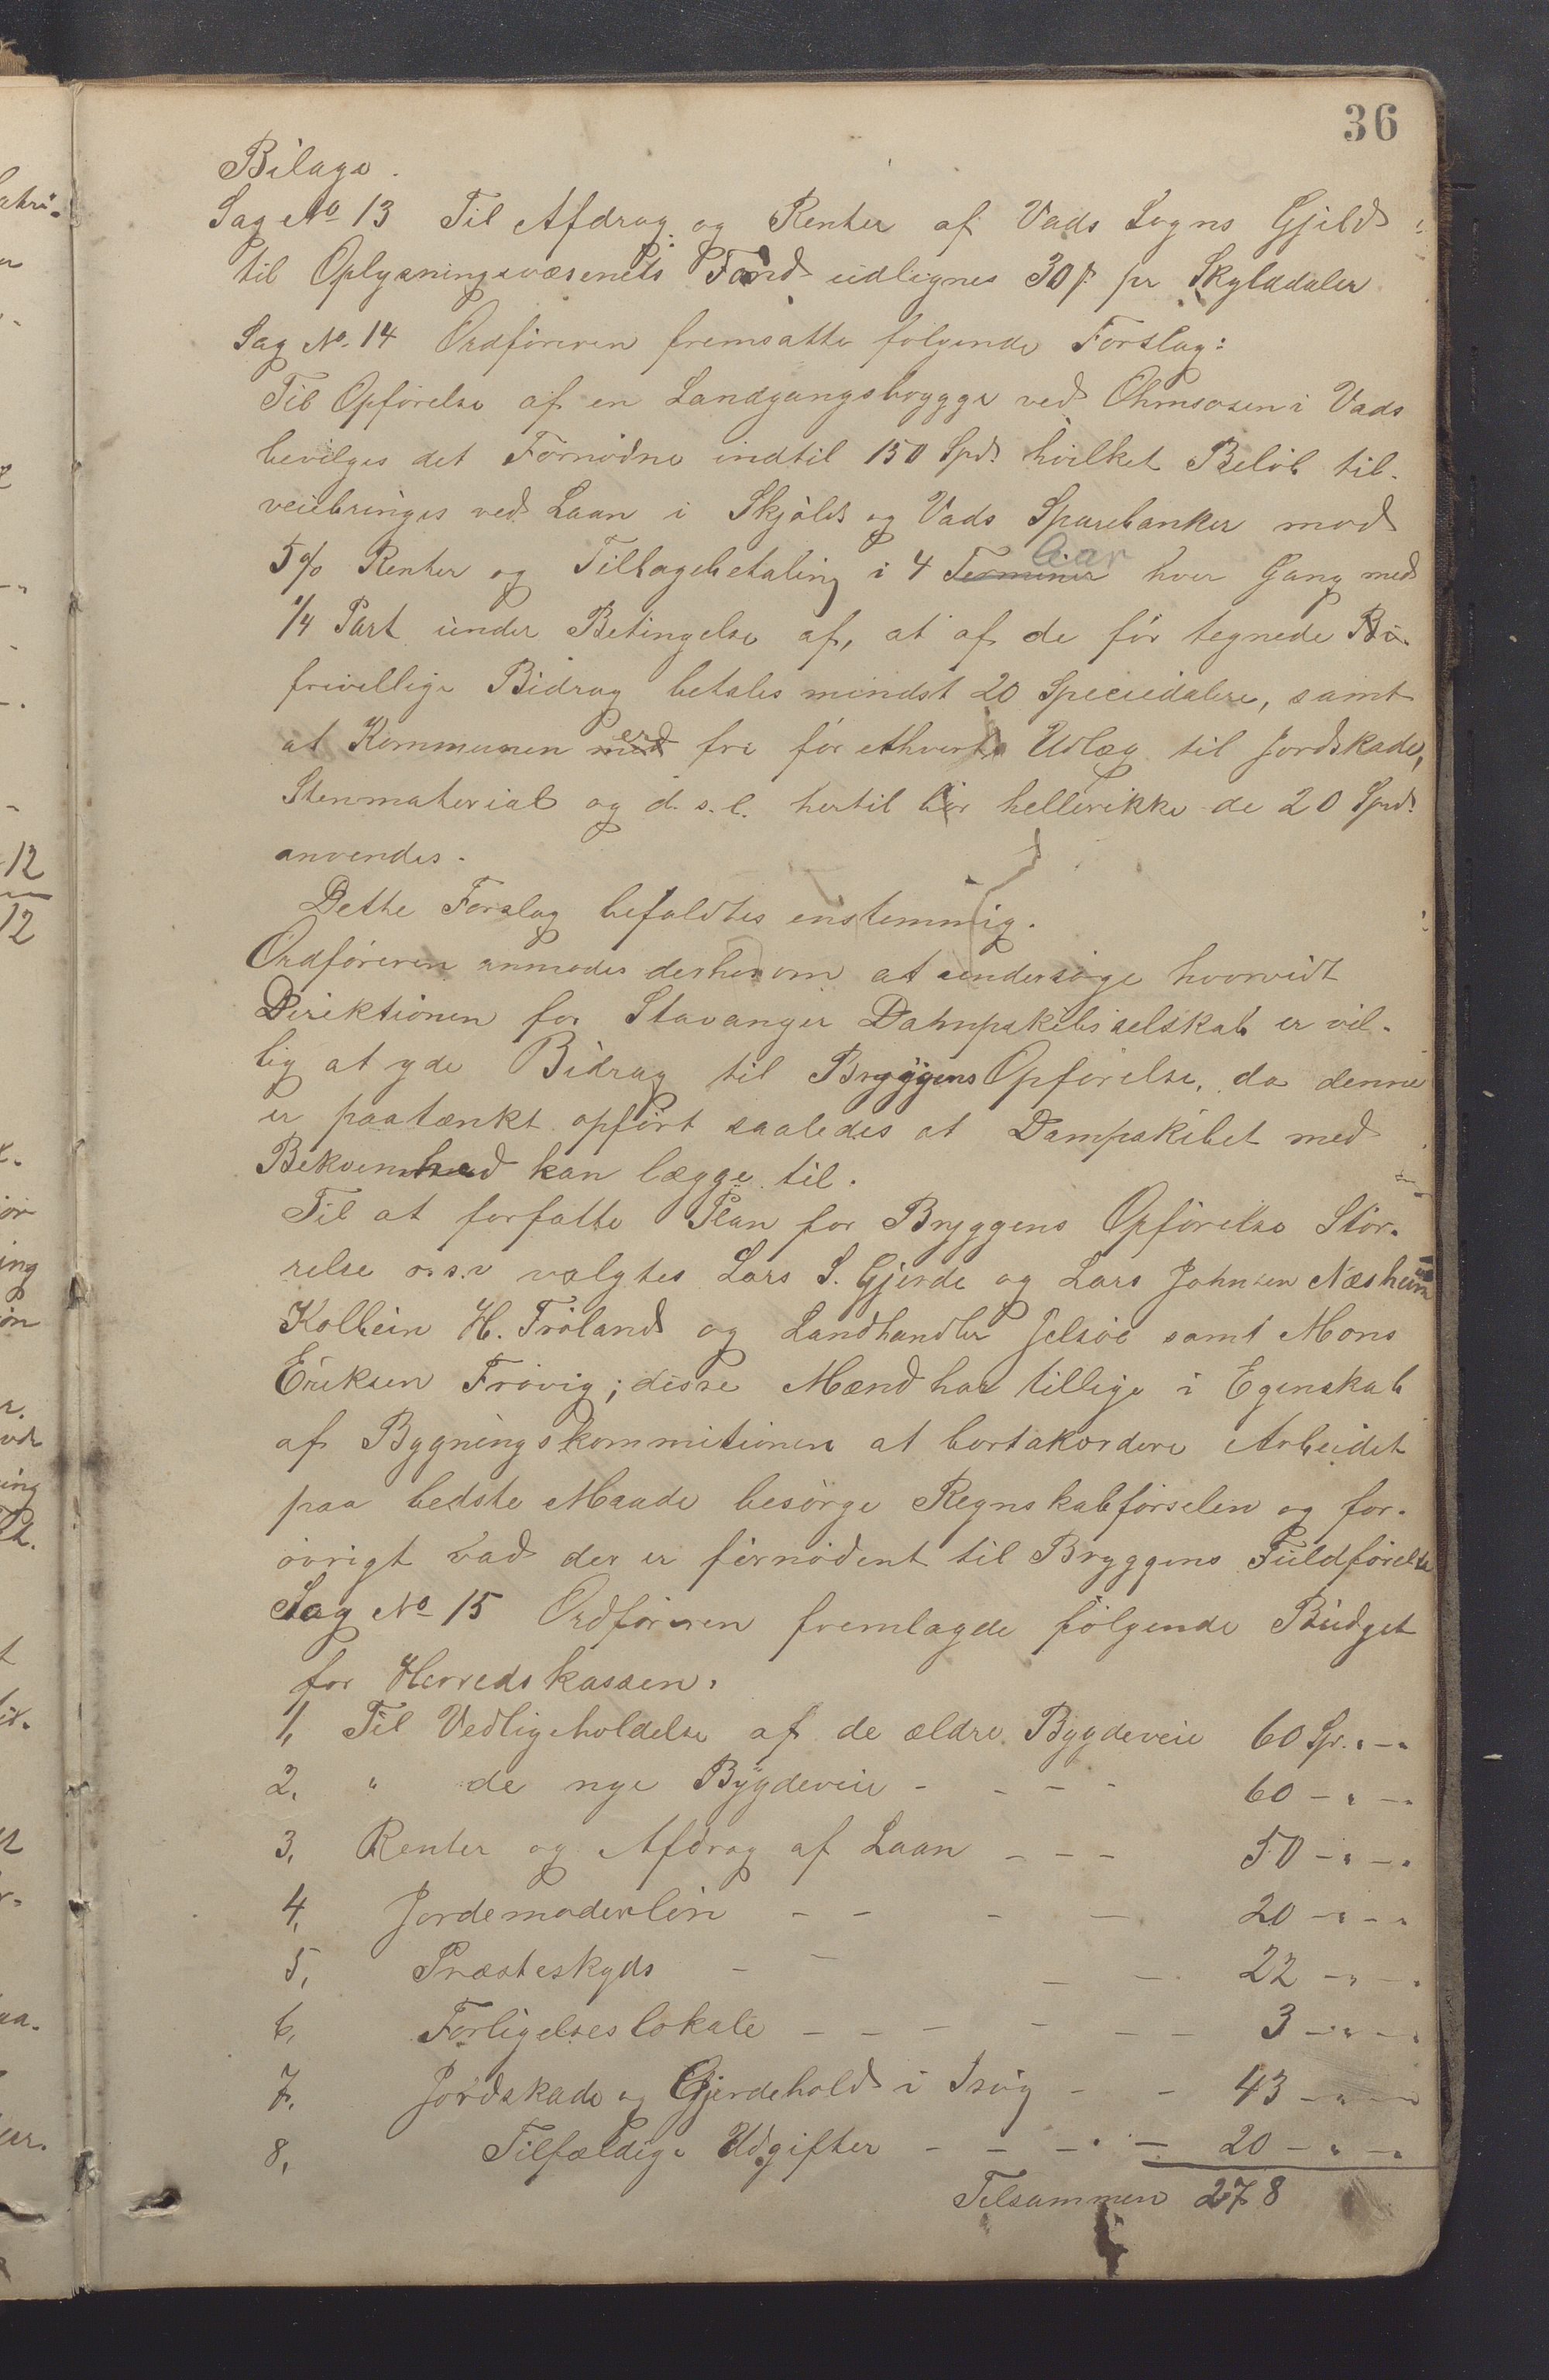 36
Bilage.
Sag No 13 Til Afdrag og Renter af Vads Sogns Gjæld
til Oplysningsvæsenets Fond udlignes 30 ſ pr Skylddaler
Sag No. 14 Ordføreren fremsatte følgende Forslag:
Til Opførelse af en Landgangsbrygge ved Ølmsosen i Vads
bevilges det Fornødne indtil 150 Spd. hvilket Beløb til-
veiebringes ved Laan i Skjolds og Vads Sparebanker mod
5% Renter og Tilbagebetaling i 4 Terminer Aar hver Gang med
1/4 Part under Betingelse af, at af de før tegnede Bi
frivillige Bidrag betales mindst 20 Speciedalere, samt
at Kommunen er fri for ethvert Udlæg til Jordskade,
Stenmaterial og d. s. l. hertil bør hellerikke de 20 Spd.
anvendes.
Dette Forslag befaldtes enstemmig.
Ordføreren anmodes derhos om at undersøge hvorvidt
Direktionen for Stavanger Dampskibsselskab er vil-
lig at yde Bidrag til Bryggens Opførelse, da denne
er paatænkt opført saaledes at Dampskibet med
Bekvemhed kan lægge til.
Til at forfatte Plan for Bryggens Opførelse Stør-
relse o. s. v valgtes Lars S. Gjerde og Lars Johnsen Næsheim
Kolbein H. Frøland og Landhandler Jelsøe samt Mons
Eriksen Frøvig; disse Mænd har tillige i Egenskab
af Bygningskommitionen at bortakordere Arbeidet
paa bedste Maade besørge Regnskabførselen og for-
øvrigt vad der er fornødent til Bryggens Fuldførelse
Sag No 15 Ordføreren fremlagde følgende Budget
for Herredskassen.
1, Til Vedligeholdelse af de ældre Bygdeveie 60 Sp. " - "
2. " de nye Bygdeveie - - - - 60 - " - "
3, Renter og Afdrag af Laan - - - 50 - " - "
4, Jordemoderløn - - - - 20 - " - "
5, Præsteskyds - - - - 22 - " - "
6, Forligelseslokale - - - - - - 3 - " - "
7. Jordskade og Gjerdehold i Isvig - - 43 - " - "
8, Tilfældige Udgifter - - - - 20 - " - "
Tilsammen 278